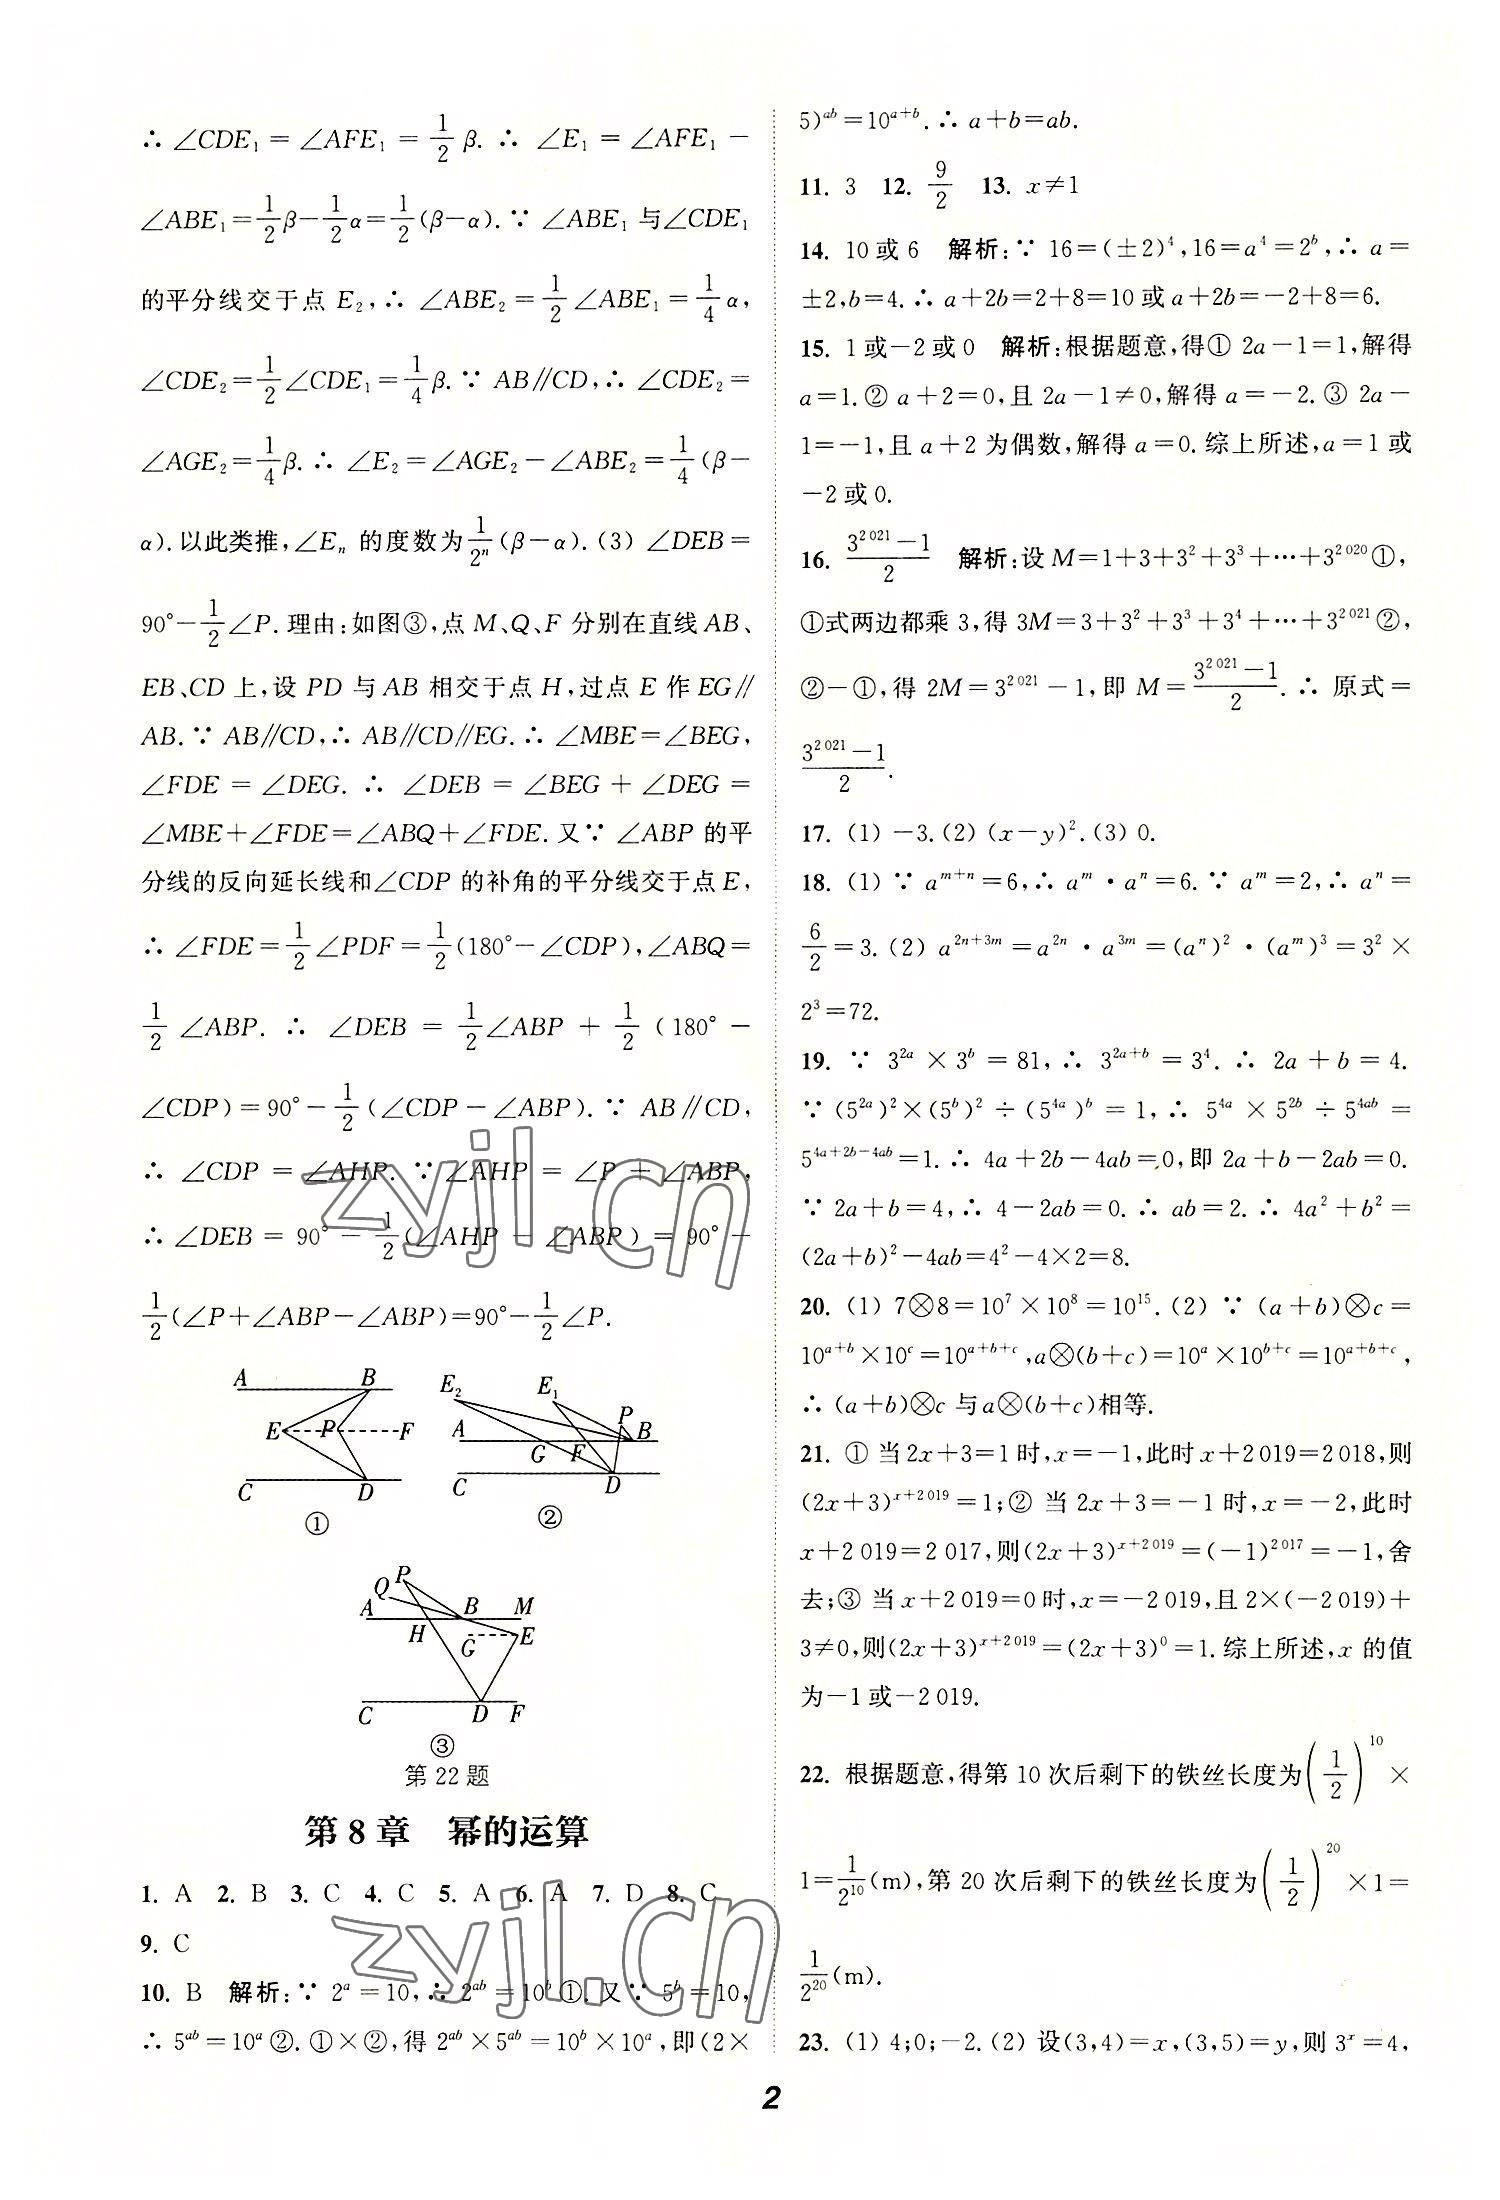 ∴ ∠CDE₁ = ∠AFE₁ = 1/2 β. ∴ ∠E₁ = ∠AFE₁ −
∠ABE₁=1/2β−1/2α=1/2(β−α).∵ ∠ABE₁ 与∠CDE₁
的平分线交于点 E₂,∴ ∠ABE₂ = 1/2 ∠ABE₁ = 1/4 α,
∠CDE₂=1/2∠CDE₁=1/4β.∵ AB∥CD,∴ ∠CDE₂=
∠AGE₂=1/4β.∴ ∠E₂=∠AGE₂−∠ABE₂=1/4(β−
α).以此类推,∠Eₙ 的度数为1/2ⁿ(β−α).(3) ∠DEB=
90°−1/2∠P.理由:如图③,点 M、Q、F 分别在直线 AB、
EB、CD 上,设 PD 与 AB 相交于点 H,过点 E 作 EG∥
AB.∵ AB∥CD,∴ AB∥CD∥EG.∴ ∠MBE=∠BEG,
∠FDE = ∠DEG. ∴ ∠DEB = ∠BEG + ∠DEG =
∠MBE+∠FDE=∠ABQ+∠FDE.又∵ ∠ABP 的平
分线的反向延长线和∠CDP 的补角的平分线交于点 E,
∴ ∠FDE=1/2∠PDF=1/2(180°−∠CDP),∠ABQ=
1/2 ∠ABP. ∴ ∠DEB = 1/2∠ABP + 1/2 (180° −
∠CDP)=90°−1/2(∠CDP−∠ABP).∵ AB∥CD,
∴ ∠CDP = ∠AHP. ∵ ∠AHP = ∠P + ∠ABP,
∴ ∠DEB = 90° − 1/2(∠AHP − ∠ABP) = 90° −
1/2(∠P+∠ABP−∠ABP)=90°−1/2∠P.
A B E P F C D ①
E₂ E₁ P A B G F C D ②
Q P A B M H G E C D F ③
第 22 题
第 8 章 幂的运算
1. A 2. B 3. C 4. C 5. A 6. A 7. D 8. C
9. C
10. B 解析:∵ 2ᵃ=10,∴ 2ᵃᵇ=10ᵇ ①.又∵ 5ᵇ=10,
∴ 5ᵃᵇ=10ᵃ ②.①×②,得 2ᵃᵇ×5ᵃᵇ=10ᵇ×10ᵃ,即(2×
5)ᵃᵇ=10ᵃ⁺ᵇ.∴ a+b=ab.
11. 3 12. 9/2 13. x≠1
14. 10或6 解析:∵ 16=(±2)⁴,16=a⁴=2ᵇ,∴ a=
±2,b=4.∴ a+2b=2+8=10 或 a+2b=−2+8=6.
15. 1或−2或0 解析:根据题意,得① 2a−1=1,解得
a=1.② a+2=0,且 2a−1≠0,解得 a=−2.③ 2a−
1=−1,且 a+2 为偶数,解得 a=0.综上所述,a=1 或
−2或0.
16. (3²⁰²¹−1)/2 解析:设 M=1+3+3²+3³+⋯+3²⁰²⁰①,
①式两边都乘 3,得 3M=3+3²+3³+3⁴+⋯+3²⁰²¹②,
②−①,得 2M=3²⁰²¹−1,即 M=(3²⁰²¹−1)/2.∴ 原式=
(3²⁰²¹−1)/2.
17. (1) −3.(2) (x−y)².(3) 0.
18. (1) ∵ aᵐ⁺ⁿ=6,∴ aᵐ·aⁿ=6.∵ aᵐ=2,∴ aⁿ=
6/2=3.(2) a²ⁿ⁺³ᵐ=a²ⁿ·a³ᵐ=(aⁿ)²·(aᵐ)³=3²×
2³=72.
19. ∵ 3²ᵃ×3ᵇ=81,∴ 3²ᵃ⁺ᵇ=3⁴.∴ 2a+b=4.
∵ (5²ᵃ)²×(5ᵇ)²÷(5⁴ᵃ)ᵇ=1,∴ 5⁴ᵃ×5²ᵇ÷5⁴ᵃᵇ=
5⁴ᵃ⁺²ᵇ⁻⁴ᵃᵇ=1.∴ 4a+2b−4ab=0,即 2a+b−2ab=0.
∵ 2a+b=4,∴ 4−2ab=0.∴ ab=2.∴ 4a²+b²=
(2a+b)²−4ab=4²−4×2=8.
20. (1) 7⊗8=10⁷×10⁸=10¹⁵.(2) ∵ (a+b)⊗c=
10ᵃ⁺ᵇ×10ᶜ=10ᵃ⁺ᵇ⁺ᶜ,a⊗(b+c)=10ᵃ×10ᵇ⁺ᶜ=10ᵃ⁺ᵇ⁺ᶜ,
∴ (a+b)⊗c 与a⊗(b+c)相等.
21. ① 当 2x+3=1 时,x=−1,此时 x+2 019=2 018,则
(2x+3)ˣ⁺²⁰¹⁹=1;② 当 2x+3=−1 时,x=−2,此时
x+2 019=2 017,则(2x+3)ˣ⁺²⁰¹⁹=(−1)²⁰¹⁷=−1,舍
去;③ 当 x+2 019=0 时,x=−2 019,且 2×(−2 019)+
3≠0,则(2x+3)ˣ⁺²⁰¹⁹=(2x+3)⁰=1.综上所述,x 的值
为−1 或−2 019.
22. 根据题意,得第 10 次后剩下的铁丝长度为(1/2)¹⁰×
1=1/2¹⁰(m),第 20 次后剩下的铁丝长度为(1/2)²⁰×1=
1/2²⁰(m).
23. (1) 4;0;−2.(2) 设(3,4)=x,(3,5)=y,则 3ˣ=4,
2
zyjl.cn
zyjl.cn